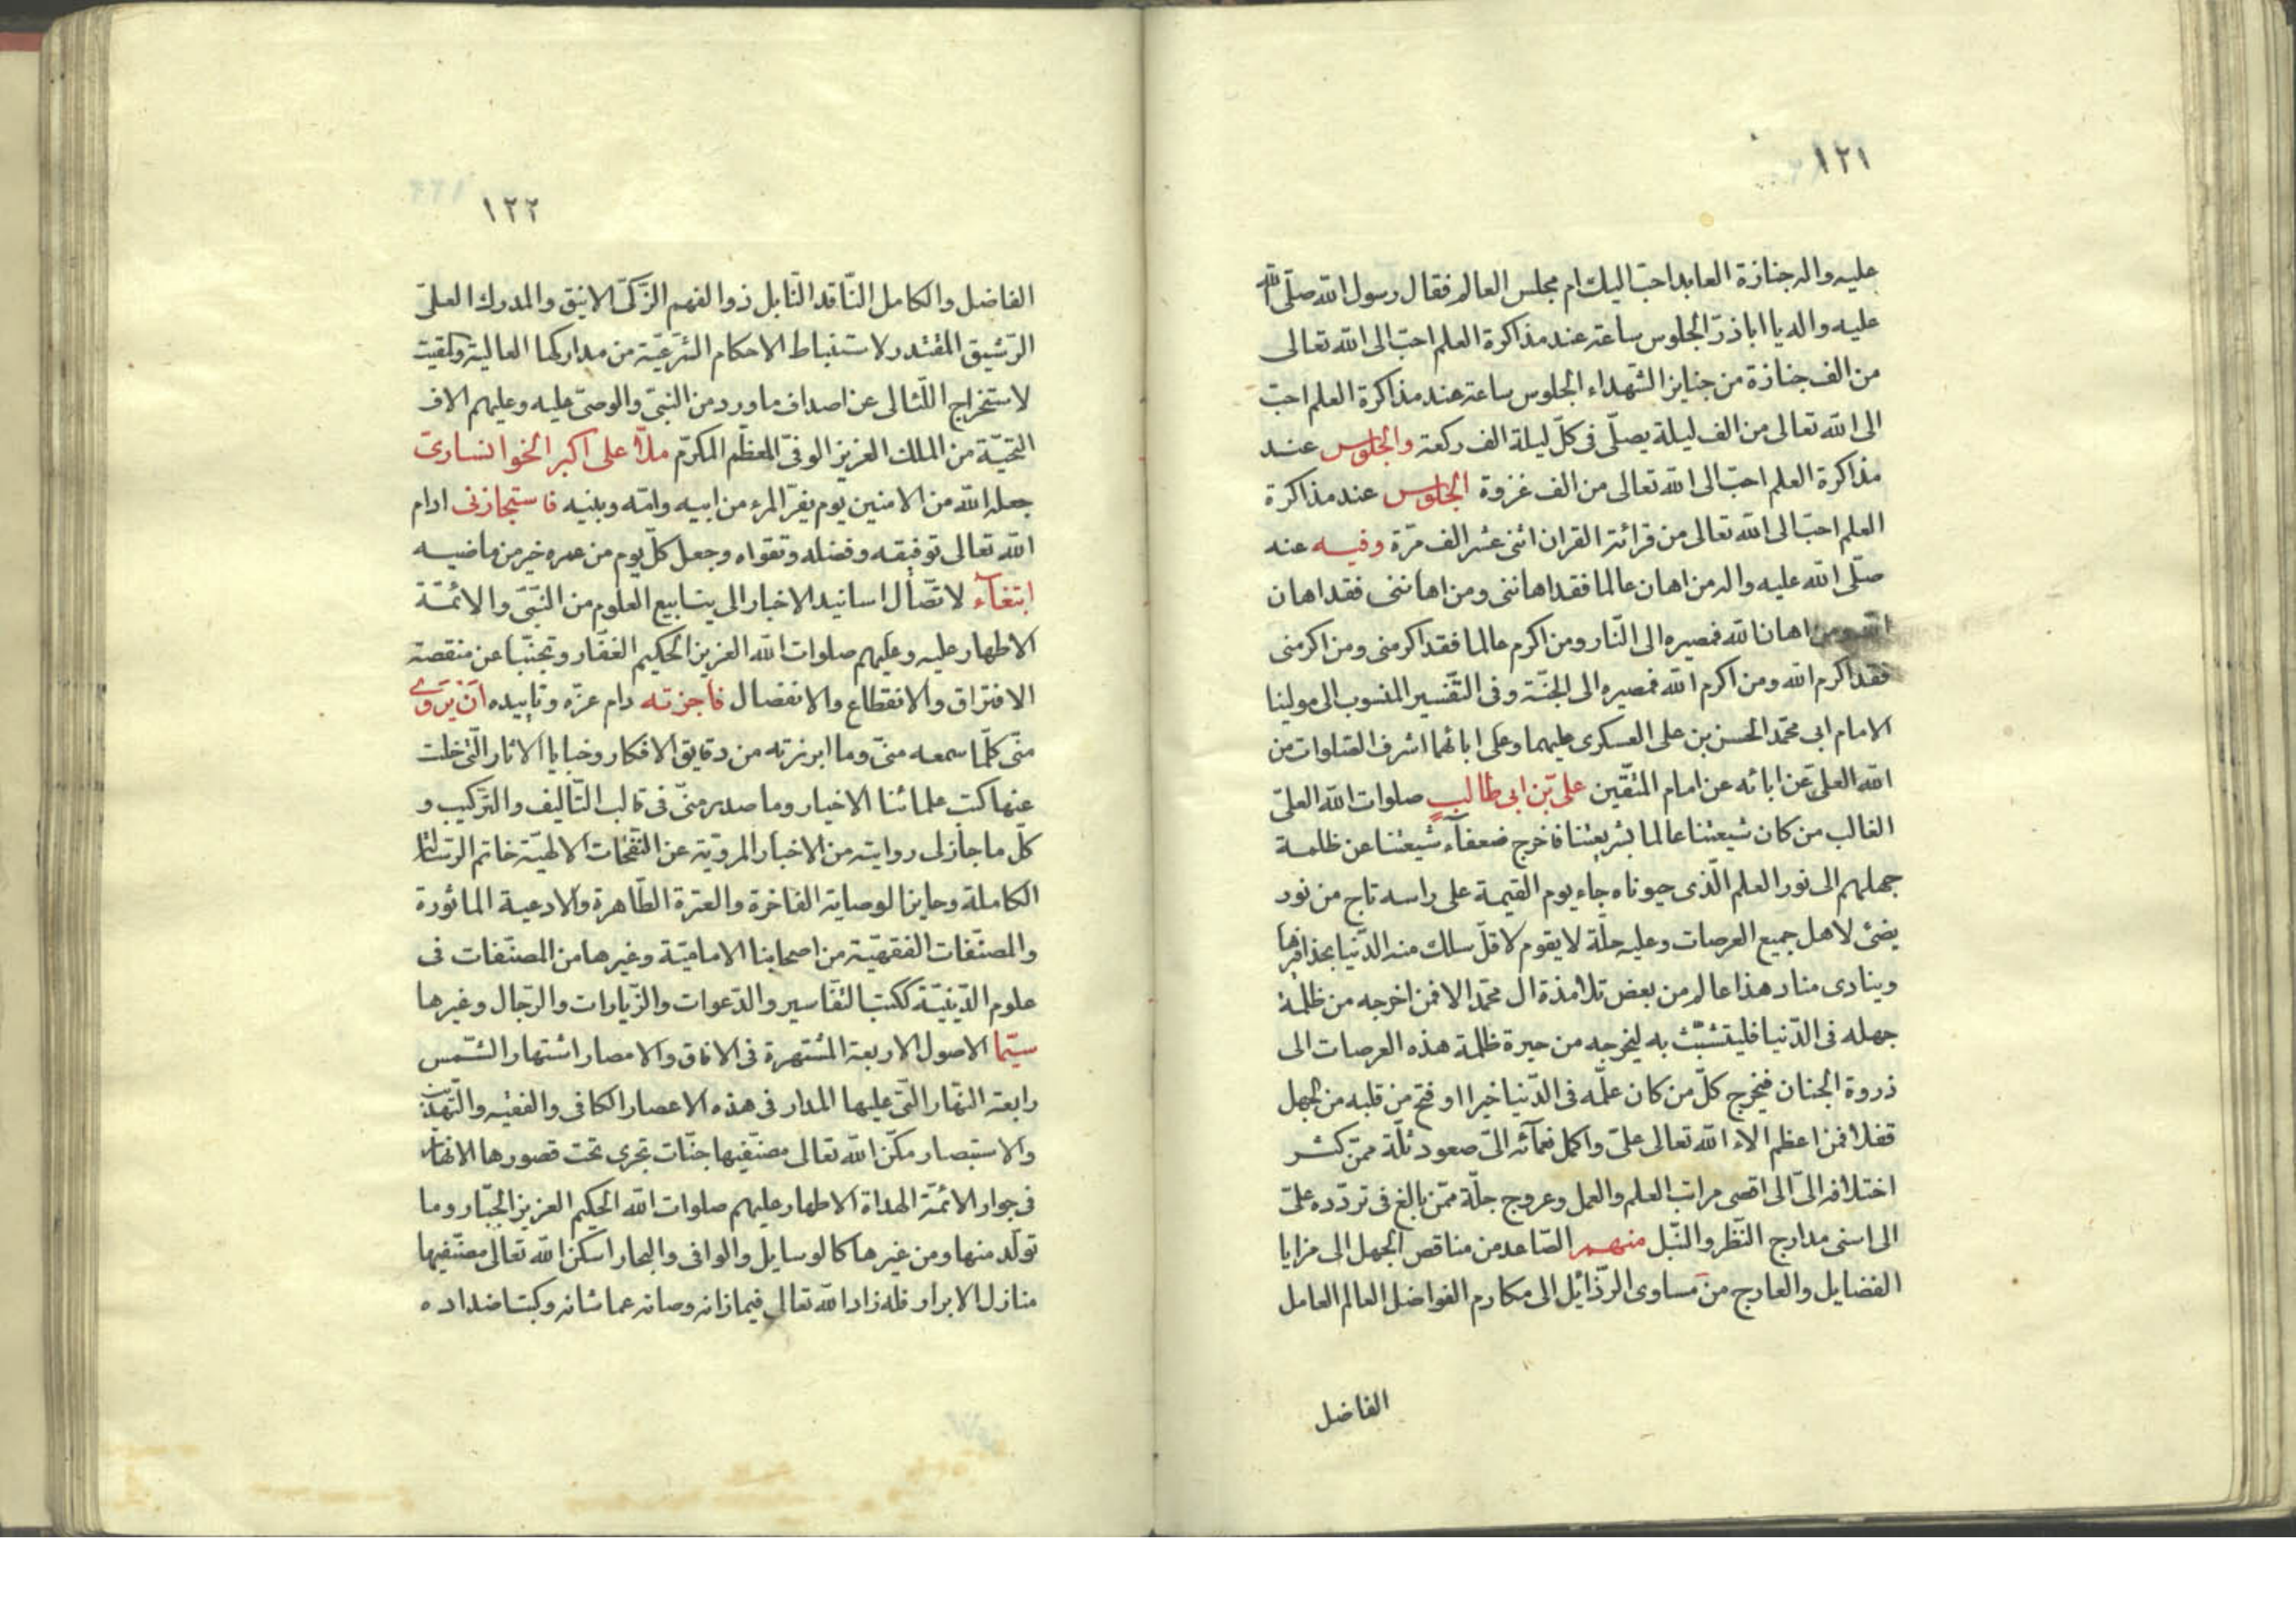 ١٢١
عليه واله جنازة العابد احبّ اليك ام مجلس العالم فقال رسول الله صلّى الله
عليه واله يا اباذرّ الجلوس ساعة عند مذاكرة العلم احبّ الى الله تعالى
من الف جنازة من جنايز الشّهداء الجلوس ساعة عند مذاكرة العلم احبّ
الى الله تعالى من الف ليلة يصلّى فى كلّ ليلة الف ركعة والجلوس عند
مذاكرة العلم احبّ الى الله تعالى من الف غزوة الجلوس عند مذاكرة
العلم احبّ الى الله تعالى من قرائة القران اثنى عشر الف مرّة وفيه عنه
صلّى الله عليه واله من اهان عالما فقد اهاننى ومن اهاننى فقد اهان
الله ومن اهان الله فمصيره الى النّار ومن اكرم عالما فقد اكرمنى ومن اكرمنى
فقد اكرم الله ومن اكرم الله فمصيره الى الجنّة وفى التّفسير المنسوب الى مولينا
الامام ابى محمّد الحسن بن على العسكرى عليهما وعلى ابائهما اشرف الصّلوات من
الله العلىّ عن ابائه عن امام المتّقين علىّ بن ابى طالب صلوات الله العلىّ
الغالب من كان شيعتنا عالما بشريعتنا فاخرج ضعفآء شيعتنا عن ظلمة
جهلهم الى نور العلم الّذى حبوناه جاء يوم القيمة على راسه تاج من نور
يضئ لاهل جميع العرصات وعليه حلّة لا يقوم لاقلّ سلك منه الدّنيا بحذافيرها
وينادى مناد هذا عالم من بعض تلامذة ال محمّد الا فمن اخرجه من ظلمة
جهله فى الدّنيا فليتشبّث به ليخرجه من حيرة ظلمة هذه العرصات الى
ذروة الجنان فيخرج كلّ من كان علّمه فى الدّنيا خيرا او فتح من قلبه من الجهل
قفلا فمن اعظم الاء الله تعالى علىّ واكمل نعمآئه الىّ صعود ثلّة ممّن كثر
اختلافه الىّ الى اقصى مراتب العلم والعمل وعروج جلّة ممّن بالغ فى تردّده علىّ
الى اسنى مدارج النّظر والنّبل منهم الصّاعد من مناقص الجهل الى مزايا
الفضايل والعارج من مساوى الرّذائل الى مكارم الفواضل العالم العامل
الفاضل
١٢٢
الفاضل والكامل النّاقد النّابل ذو الفهم الزّكىّ الانيق والمدرك العلىّ
الرّشيق المقتدر لاستنباط الاحكام الشّرعيّة من مداركها العالية
لاستخراج اللّئالى عن اصداف ما ورد من النبىّ والوصىّ عليه وعليهم الاف
التحيّة من الملك العزيز الوفىّ المعظّم المكرّم ملّا على اكبر الخوانسارىّ
جعله الله من الامنين يوم يفرّ المرء من ابيه وامّه وبنيه فاستجازنى ادام
الله تعالى توفيقه وفضله وتقواه وجعل كلّ يوم من عمره خير من ماضيه
ابتغآء لاتّصال اسانيد الاخبار الى ينابيع العلوم من النّبىّ والائمّة
الاطهار عليه وعليهم صلوات الله العزيز الحكيم الغفّار وتجنّبا عن منقصة
الافتراق والانقطاع والانفصال فاجزته دام عزّه وتاييده ان يروى
منّى كلّما سمعه منّى وما ابرزته من دقايق الافكار وخبايا الاثار الّتى خلت
عنها كتب علمائنا الاخيار وما صدر منّى فى قالب التّاليف والتّركيب و
كلّ ما جاز لى روايته من الاخبار المرويّة عن النّفحات الالهيّة خاتم الرّسالة
الكاملة وحايز الوصاية الفاخرة والعترة الطّاهرة والادعية الماثورة
والمصنّفات الفقهيّة من اصحابنا الاماميّة وغيرها من المصنّفات فى
علوم الدّينيّة ككتب التّفاسير والدّعوات والزّيارات والرّجال وغيرها
سيّما الاصول الاربعة المشتهرة فى الافاق والامصار اشتهار الشّمس
رابعة النّهار الّتى عليها المدار فى هذه الاعصار الكافى والفقيه والتّهذيب
والاستبصار مكّن الله تعالى مصنّفيها جنّات تجرى تحت قصورها الانهار
فى جوار الائمّة الهداة الاطهار عليهم صلوات الله الحكيم العزيز الجبّار وما
تولّد منها ومن غيرها كالوسايل والوافى والبحار اسكن الله تعالى مصنّفيها
منازل الابرار فله زاد الله تعالى فيما زانه وصانه عما شانه وكبت اضداده